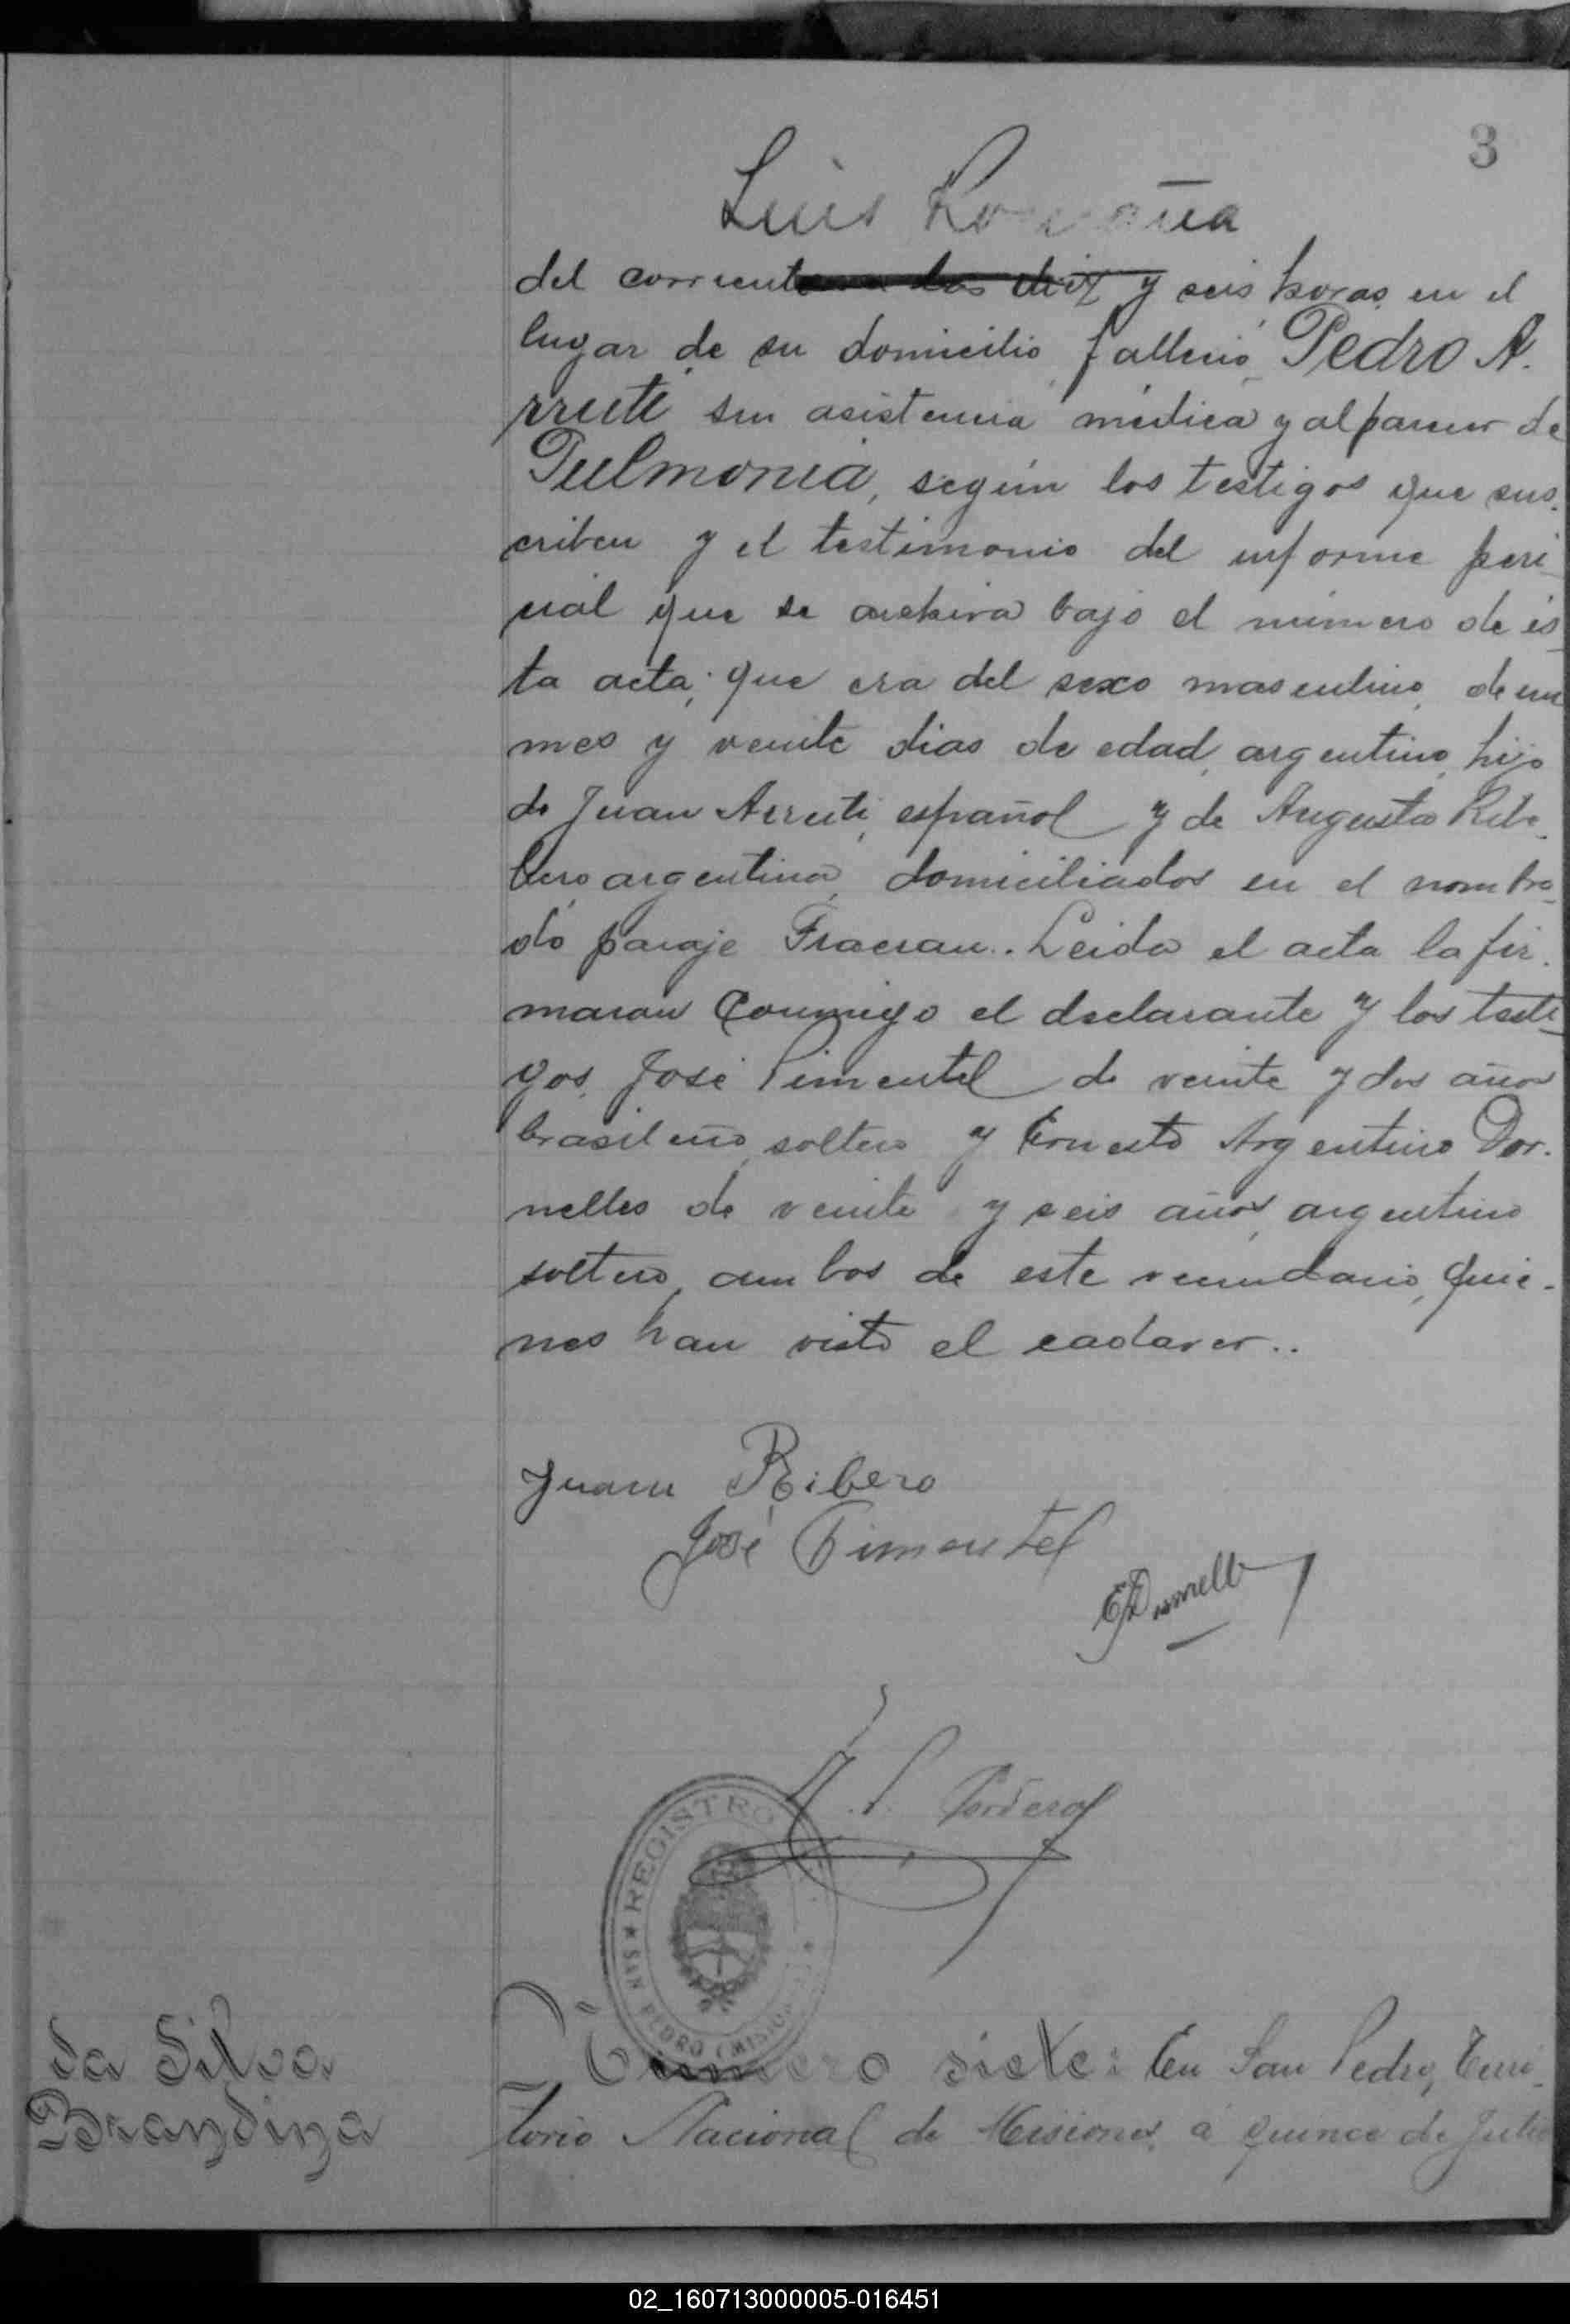 3
Luis
del corriente a las diez y seis horas en el
lugar de su domicilio, falleció, Pedro A.
rruti sin asistencia médica y al parecer de
Pulmonia, según los testigos que sus.
criben y el testimonio del informe peri-
cial que se archiva bajo el número de és-
ta acta; que era del sexo masculino, de un
mes y veinte dias de edad, argentino, hijo
de Juan Arruti, español y de Augusta Ribe-
bero, argentina, domiciliados en el nombra-
do paraje Fracran.. Leida el acta la fir.
maron Conmigo el declarante y los testi-
gos, José Pimentel de veinte y dos años
brasileño, soltero y Ernesto Argentino Dor.
nelles de veinte y seis años, argentino
soltero, ambos de este vecindario, quie-
nes han visto el cadaver..
Juan Ribero
José Pimentel
EDornelle
REGISTRO
SAN PEDRO (MISIONES)
da Silva
Brandina
Número siete: En San Pedro, Terri-
torio Nacional de Misiones, a quince de Julio
02_160713000005-016451